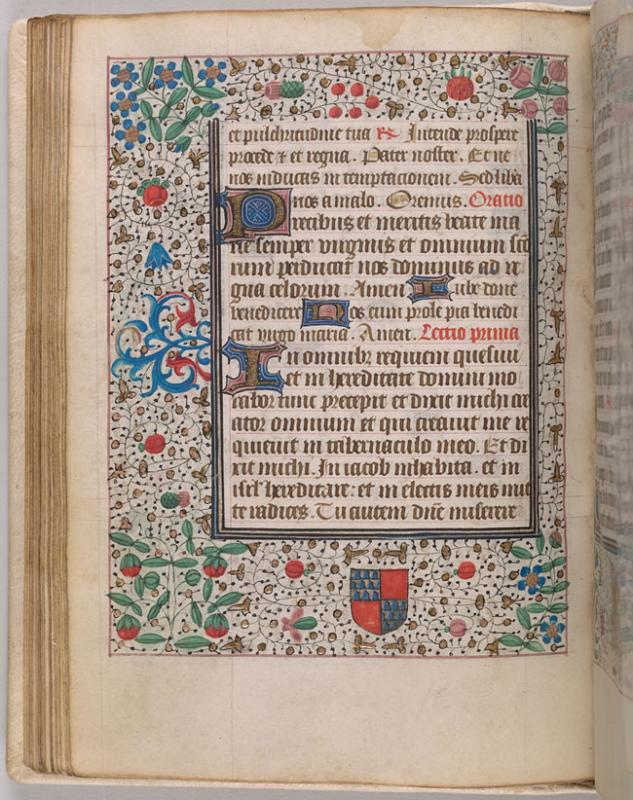 et pulchritudine tua ℟ Intende prospere
procede ⁊ et regna. Pater noster. Et ne
nos inducas in temptacionem. Sed libe
nos a malo. Oremus. Oratio
Precibus et meritis beate ma
rie semper virginis et omnium scō
rum perducat nos dominus ad re
gna celorum. Amen Iube done
benedicere Nos cum prole pia benedi
cat virgo maria. Amen. Lectio prima
In omnibꝫ requiem quesiui
et in hereditate domini mo
rabor tunc precepit et dixit michi cre
ator omnium et qui creauit me re
quieuit in tabernaculo meo. Et di
xit michi. In iacob inhabita. et in
isrl̄ hereditare: et in electis meis mit
te radices. Tu autem dñe miserere